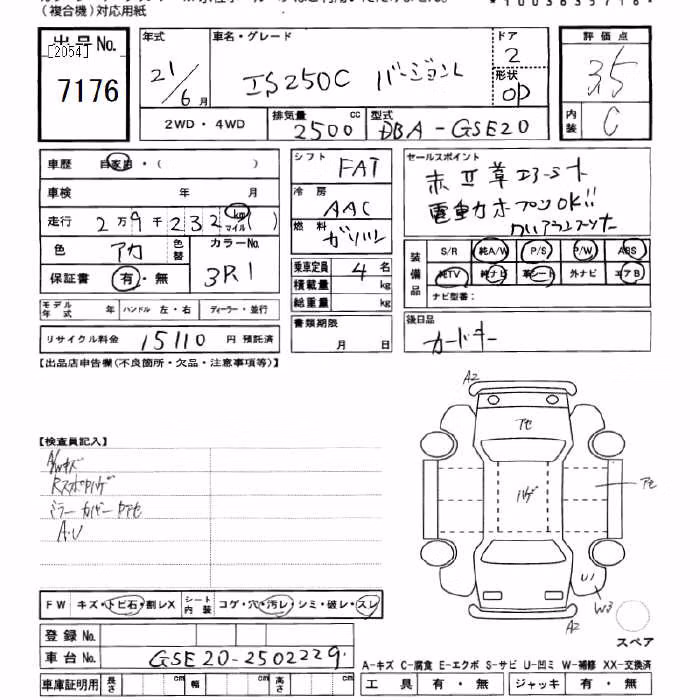 （複合機）対応用紙
出品No. [2054] 7176
年式 21/6月
車名・グレード IS250C バージョンL
ドア 2
形状 OP
評価点 3.5
内装 C
2WD・4WD
排気量 2500 cc
型式 DBA-GSE20
車歴 自家用・（ ）
車検 年 月
走行 2万9千232 km マイル ( )
色 アカ 色替 カラーNo. 3R1
保証書 有・無
モデル年式 年 ハンドル 左・右 ディーラー・並行
リサイクル料金 15110 円 預託済
シフト FAT
冷房 AAC
燃料 ガソリン
乗車定員 4 名
積載量 kg
総重量 kg
書類期限 月 日
セールスポイント
赤 革 シート
電動 オープンOK!!
装備品 S/R 純A/W P/S P/W ABS
純TV 純ナビ 革シート 外ナビ エアB
ナビ型番：
後日品
カードキー
【出品店申告欄（不良箇所・欠品・注意事項等）】
【検査員記入】
A/Wキズ
ミラーカバー
A.U
FW キズ・トビ石・割レX シート内装 コゲ・穴・汚レ・シミ・破レ・スレ
登録No.
車台No. GSE20-2502229
車庫証明用 長さ cm 幅 cm 高さ cm
A2
アセ
ハゲ
アセ
U1
W3
A2
スペア
A-キズ C-腐食 E-エクボ S-サビ U-凹ミ W-補修 XX-交換済
工具 有・無 ジャッキ 有・無